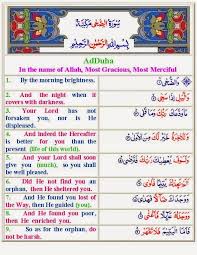 سورة الضحى مكية
بسم الله الرحمن الرحيم
AdDuha
In the name of Allah, Most Gracious, Most Merciful
1. By the morning brightness. وَالضُّحَى
2. And the night when it covers with darkness. وَاللَّيْلِ إِذَا سَجَى
3. Your Lord has not forsaken you, nor is He displeased. مَا وَدَّعَكَ رَبُّكَ وَمَا قَلَى
4. And indeed the Hereafter is better for you than the present (life of this world). وَلَلْآخِرَةُ خَيْرٌ لَّكَ مِنَ الْأُولَى
5. And your Lord shall soon give you (much), so you shall be well pleased. وَلَسَوْفَ يُعْطِيكَ رَبُّكَ فَتَرْضَى
6. Did He not find you an orphan, then He sheltered you. أَلَمْ يَجِدْكَ يَتِيمًا فَآوَى
7. And He found you lost of the Way, then He Guided (you). وَوَجَدَكَ ضَالًّا فَهَدَى
8. And He found you poor, then He enriched you. وَوَجَدَكَ عَائِلًا فَأَغْنَى
9. So as for the orphan, do not be harsh. فَأَمَّا الْيَتِيمَ فَلَا تَقْهَرْ